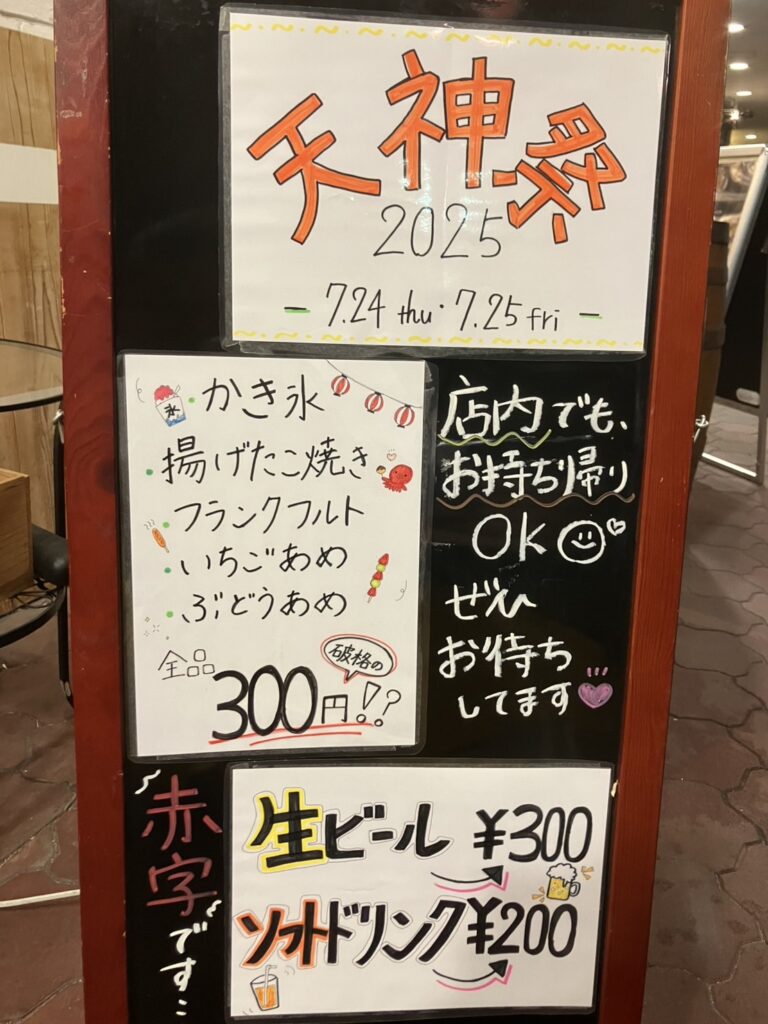 天神祭
2025
- 7.24 thu・7.25 fri -
氷
・かき氷
・揚げたこ焼き
・フランクフルト
・いちごあめ
・ぶどうあめ
全品
破格の
300円!!?
店内でも、
お持ち帰り
OK
ぜひ
お待ち
してます
赤字です…
生ビール ¥300
ソフトドリンク ¥200